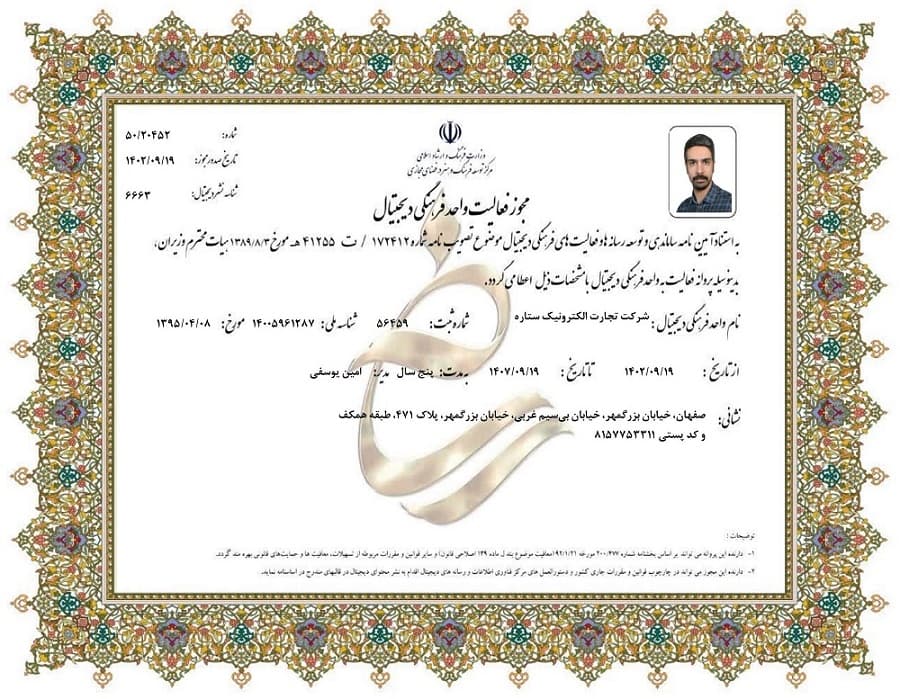 شماره: ۵۰/۲۰۴۵۲
تاریخ صدور مجوز: ۱۴۰۲/۰۹/۱۹
شناسه نشر دیجیتال: ۶۶۶۳
وزارت فرهنگ و ارشاد اسلامی
مرکز توسعه فرهنگ و هنر در فضای مجازی
مجوز فعالیت واحد فرهنگی دیجیتال
به استناد آیین نامه ساماندهی و توسعه رسانه ها و فعالیت های فرهنگی دیجیتال موضوع تصویب نامه شماره ۱۷۲۴۱۲ / ت ۴۱۲۵۵ هـ مورخ ۱۳۸۹/۸/۳ هیات محترم وزیران،
بدینوسیله پروانه فعالیت به واحد فرهنگی دیجیتال با مشخصات ذیل اعطا می گردد.
نام واحد فرهنگی دیجیتال : شرکت تجارت الکترونیک ستاره شماره ثبت: ۵۶۴۵۹ شناسه ملی: ۱۴۰۰۵۹۶۱۲۸۷ مورخ: ۱۳۹۵/۰۴/۰۸
از تاریخ : ۱۴۰۲/۰۹/۱۹ تا تاریخ : ۱۴۰۷/۰۹/۱۹ به مدت: پنج سال مدیر: امین یوسفی
نشانی: صفهان، خیابان بزرگمهر، خیابان بی‌سیم غربی، خیابان بزرگمهر، پلاک ۴۷۱، طبقه همکف
و کد پستی ۸۱۵۷۷۵۳۳۱۱
توضیحات :
۱- دارنده این پروانه می تواند بر اساس بخشنامه شماره ۲۰۰/۴۷۷ مورخه ۹۲/۱/۲۱(معافیت موضوع بند ل ماده ۱۳۹ اصلاحی قانون) و سایر قوانین و مقررات مربوطه از تسهیلات، معافیت ها و حمایت‌های قانونی بهره مند گردد.
۲- دارنده این مجوز می تواند در چارچوب قوانین و مقررات جاری کشور و دستورالعمل های مرکز فناوری اطلاعات و رسانه های دیجیتال اقدام به نشر محتوای دیجیتال در قالبهای مندرج در اساسنامه نماید.